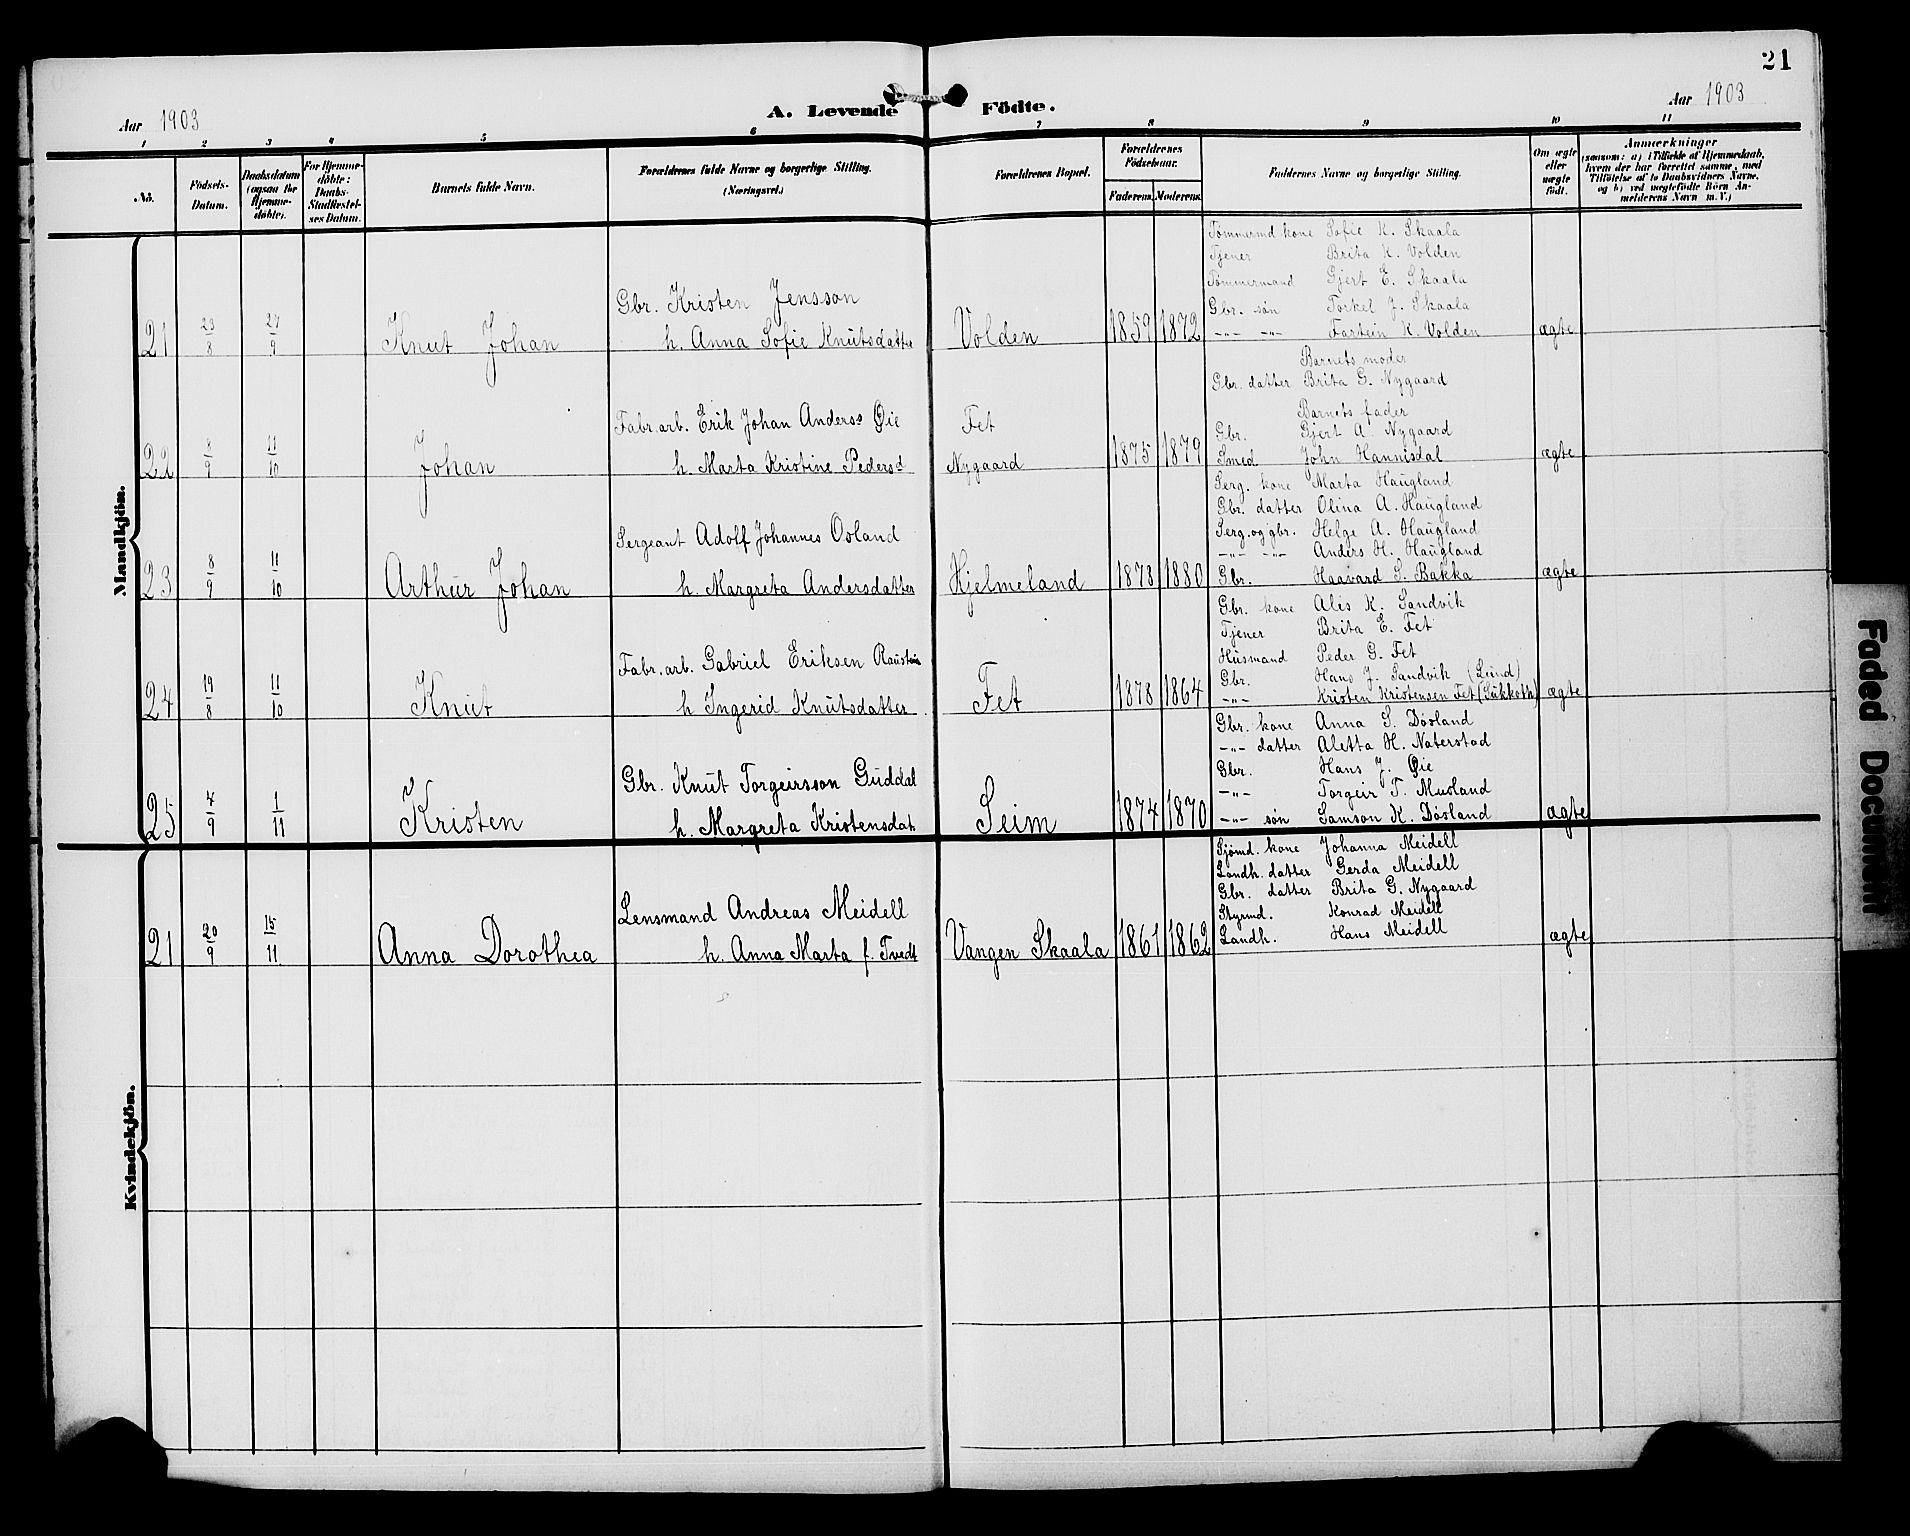 21
Aar 1903
A. Levende Födte.
Aar 1903
1 2 3 4 5 6 7 8 9 10 11
No.
Födsels-Datum.
Daabsdatum (ogsaa for Hjemme-döbte).
For Hjemme-döbte: Daabs-Stadfæstel-ses Datum.
Barnets fulde Navn.
Forældrenes fulde Navne og borgerlige Stilling. (Næringsvei.)
Forældrenes Bopæl.
Forældrenes Födselsaar.
Faderens. Moderens.
Faddernes Navne og borgerlige Stilling.
Om ægte eller uægte födt.
Anmærkninger
(saasom: a) i Tilfælde af Hjemmedaab, hvem der har forrettet samme, med Tilföielse af to Daabsvidners Navne, og b) ved uægtefödte Börn An-melderens Navn m. V.)
Mandkjön.
21 23/8 27/9 Knut Johan
Gbr. Kristen Jensson
h. Anna Sofie Knutsdatter
Volden 1859 1872
Tømmermd kone Sofie K. Skaala
Tjener Brita K. Volden
Tømmermand Gjert E. Skaala
Gbr. søn Torkel J. Skaala
-"- -"- Fartein K. Volden
ægte
22 8/9 11/10 Johan
Fabr. arb. Erik Johan Anderss Øie
h. Marta Kristine Pedersd
Fet
Nygaard 1875 1879
Barnets moder
Gbr. datter Brita G. Nygaard
Barnets fader
Gbr. Gjert A. Nygaard
Smed John Hannisdal
ægte
23 8/9 11/10 Arthur Johan
Sergeant Adolf Johannes Osland
h. Margreta Andersdatter
Hjelmeland 1878 1880
Serg. kone Marta Haugland
Gbr. datter Olina A. Haugland
Serg. og gbr. Helge A. Haugland
-"- -"- Anders H. Haugland
Gbr. Haavard S. Bakka
ægte
24 19/8 11/10 Knut
Fabr. arb. Gabriel Eriksen Raustein
h Ingerid Knutsdatter
Fet 1878 1864
Gbr. kone Alis K. Sandvik
Tjener Brita E. Fet
Husmand Peder G. Fet
Gbr. Hans J. Sandvik (Lund)
-"- Kristen Kristensen Fet (Sukkoth)
ægte
25 4/9 1/11 Kristen
Gbr. Knut Torgeirsson Guddal
h. Margreta Kristensdat.
Seim 1874 1870
Gbr. kone Anna S. Døsland
-"- datter Aletta H. Naterstad
Gbr. Hans J. Øie
-"- Torgeir T. Musland
-"- søn Samson K. Døsland
ægte
Kvindekjön.
21 20/9 15/11 Anna Dorothea
Lensmand Andreas Meidell
h. Anna Marta f. Tvedt
Vangen Skaala 1861 1862
Sjømd. kone Johanna Meidell
Landh. datter Gerda Meidell
Gbr. datter Brita G. Nygaard
Styrmd. Konrad Meidell
Landh. Hans Meidell
ægte
Faded Document